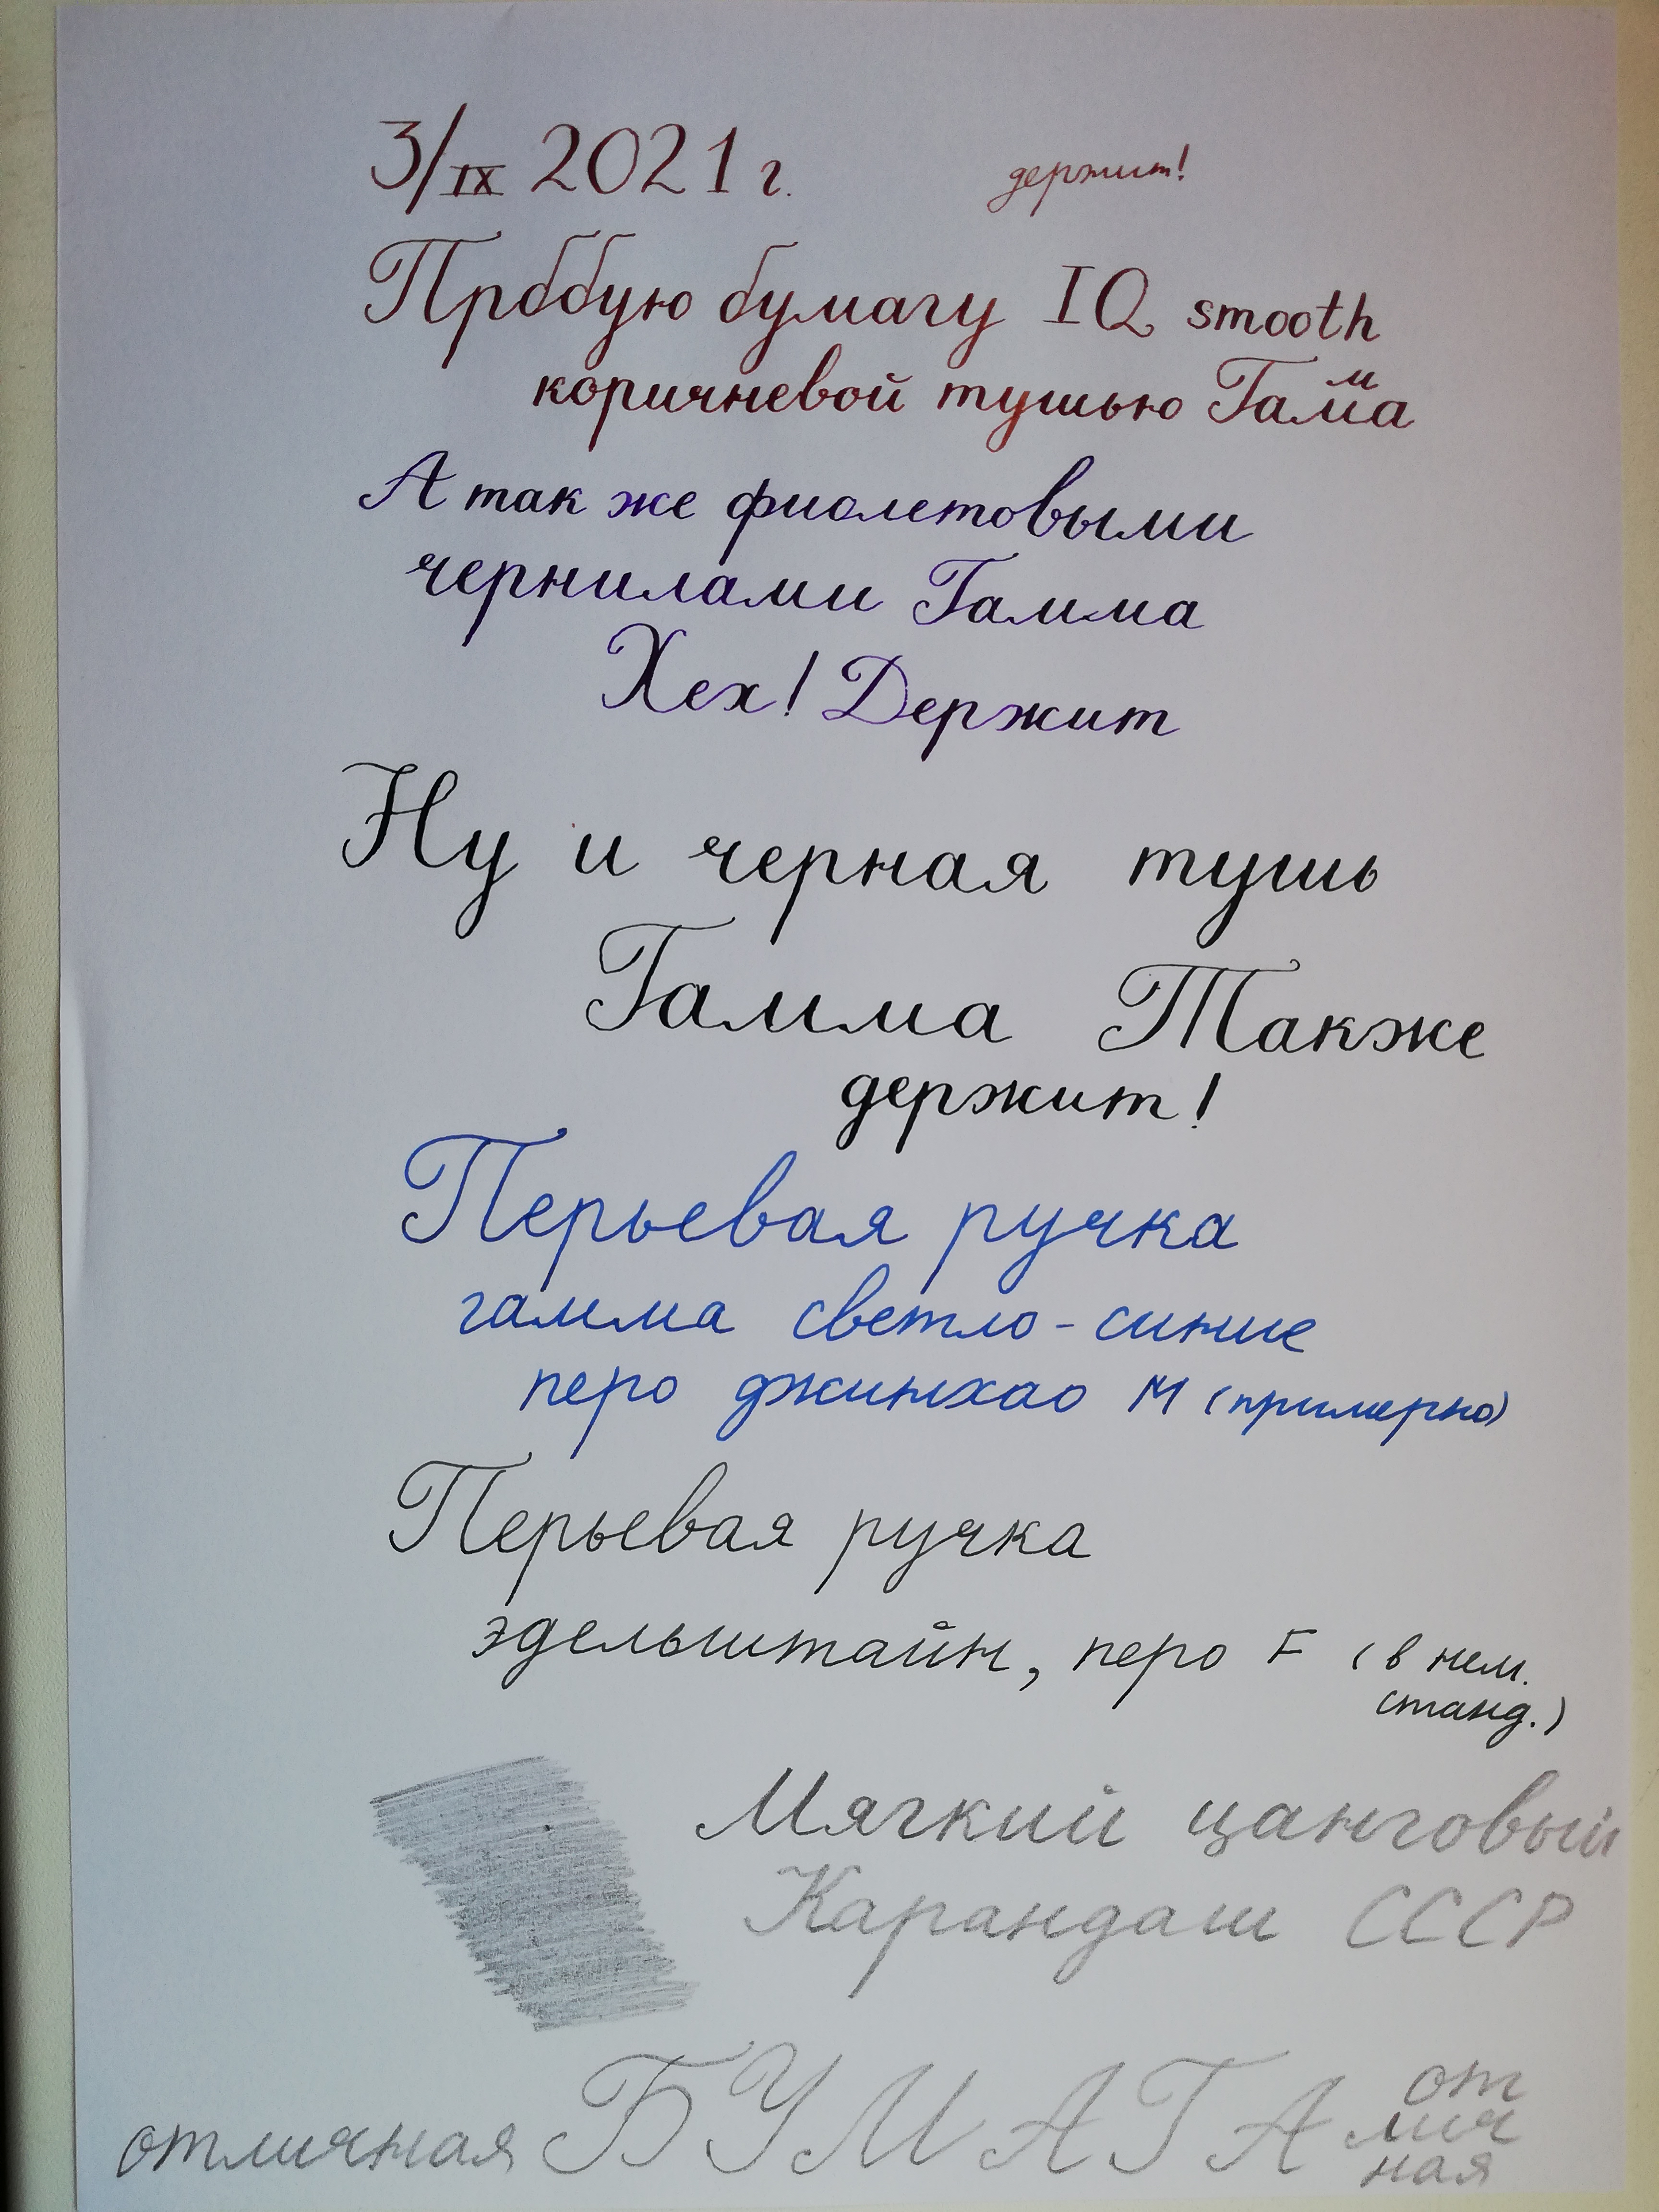 3/IX 2021 г. держит!
Проббую бумагу IQ smooth
коричневой тушью Гамма
А так же фиолетовыми
чернилами Гамма
Хех! Держит
Ну и черная тушь
Гамма Также
держит!
Перьевая ручка
гамма светло-синие
перо джинхао М (примерно)
Перьевая ручка
эдельштайн, перо F (в нем.
станд.)
Мягкий цанговый
Карандаш СССР
отличная БУМАГА от
лич
ная